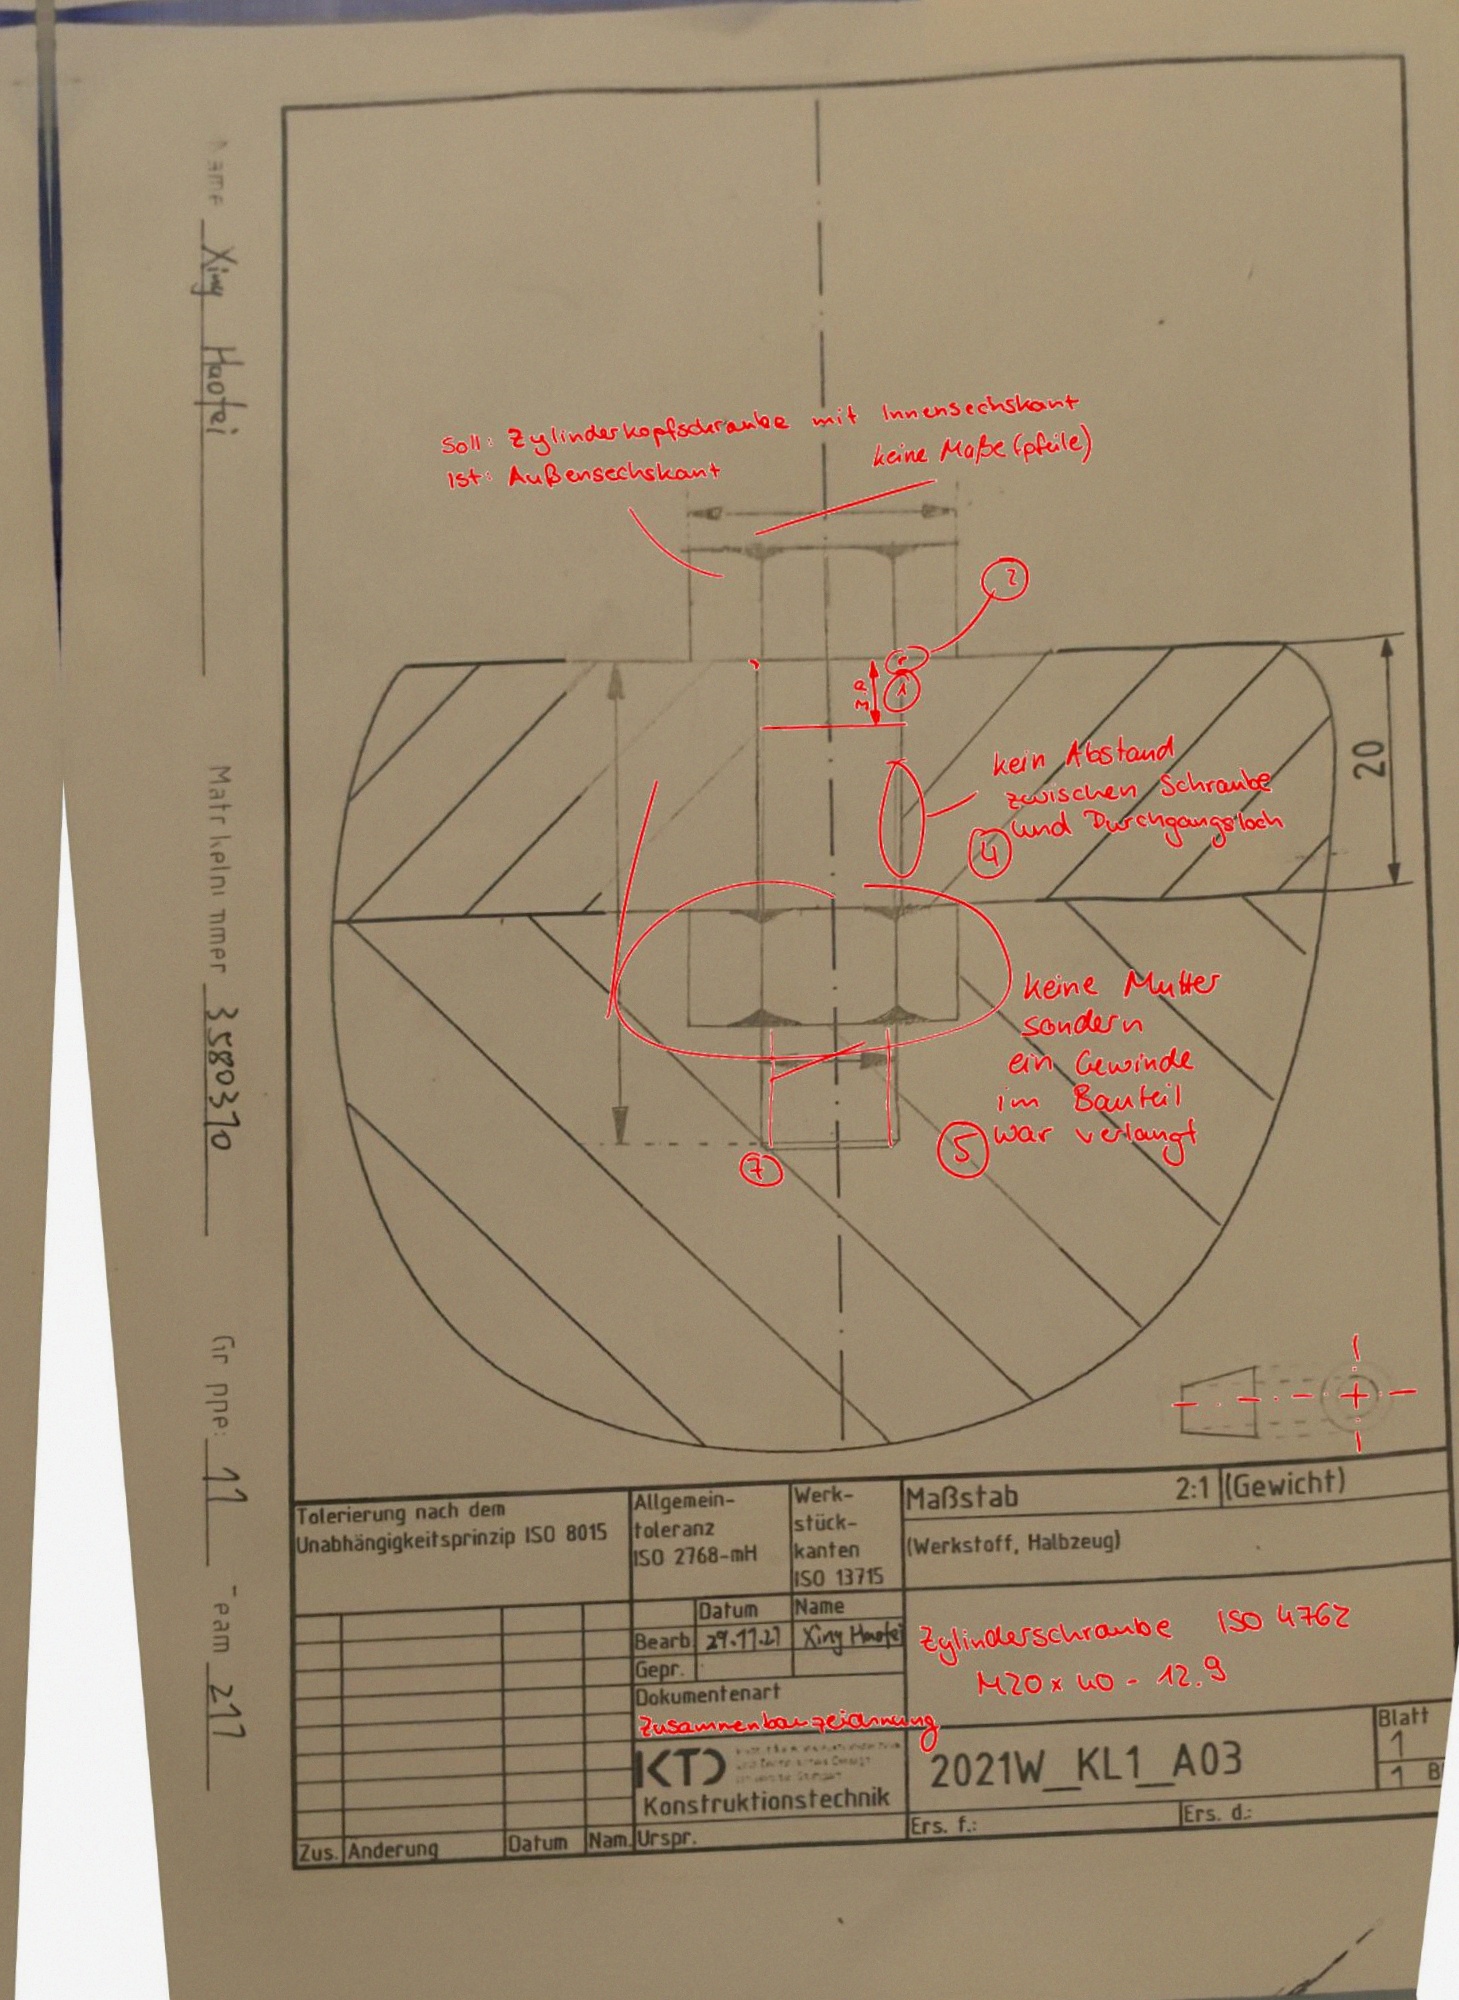 Name Xing Haofei
Matrikelnummer 3580370
Gruppe: 11
Team 217
Soll: Zylinderkopfschraube mit Innensechskant
Ist: Außensechskant
keine Maße(pfeile)
2
a
1
kein Abstand
zwischen Schraube
und Durchgangsloch
4
20
keine Mutter
sondern
ein Gewinde
im Bauteil
war verlangt
5
7
Tolerierung nach dem
Unabhängigkeitsprinzip ISO 8015
Allgemein-
toleranz
ISO 2768-mH
Werk-
stück-
kanten
ISO 13715
Maßstab 2:1 (Gewicht)
(Werkstoff, Halbzeug)
Datum Name
Bearb. 29.11.21 Xing Haofei
Gepr.
Dokumentenart
Zusammenbauzeichnung
Zylinderschraube ISO 4762
M20 x 40 - 12.9
KTD
Konstruktionstechnik
2021W_KL1_A03
Blatt
1
1 B
Zus. Änderung Datum Nam. Urspr.
Ers. f.: Ers. d.: